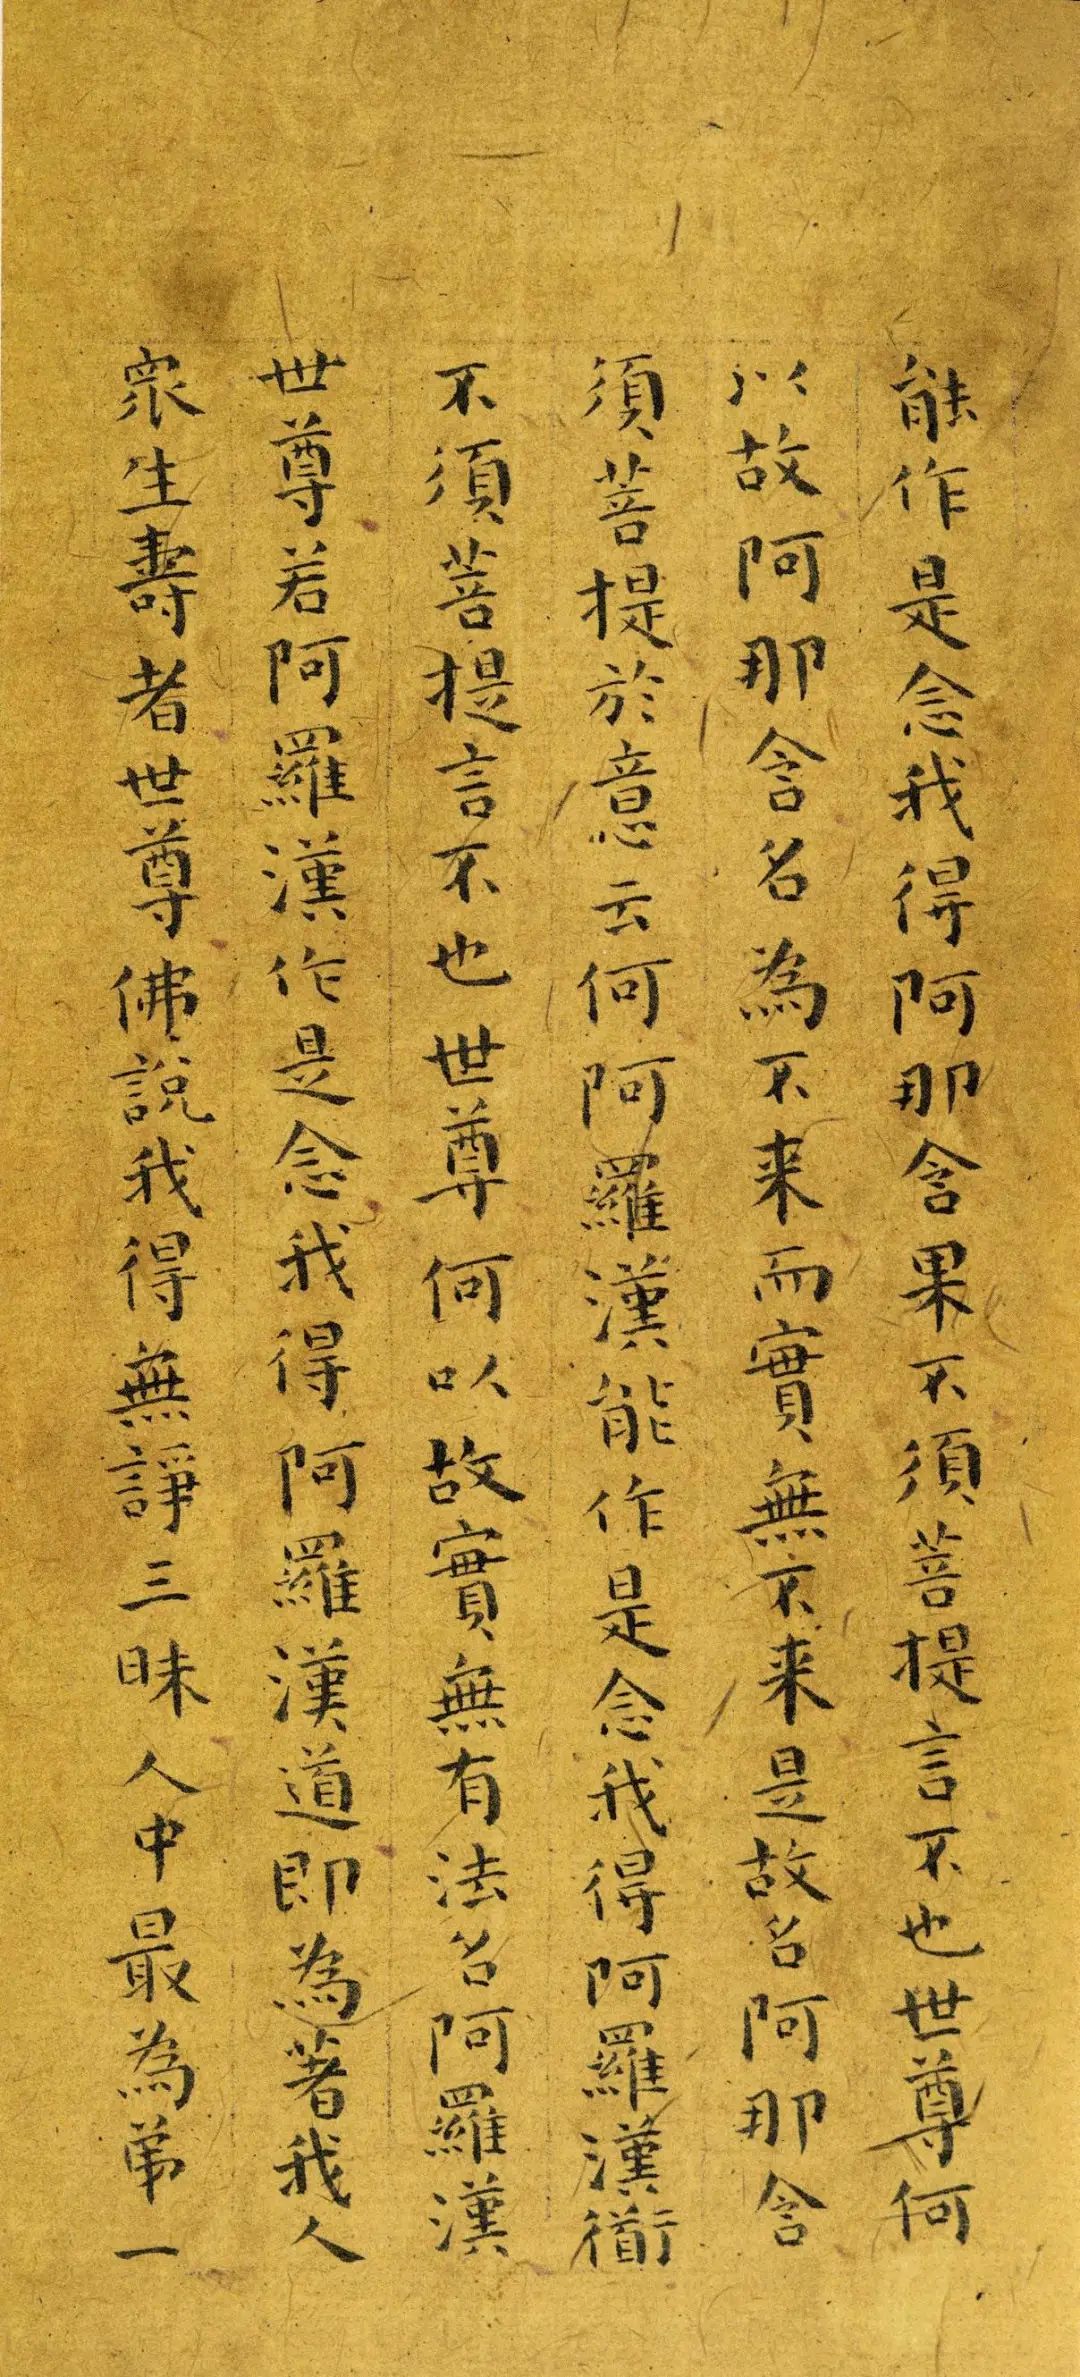 能作是念我得阿那含果不須菩提言不也世尊何
以故阿那含名為不来而實無不来是故名阿那含
須菩提於意云何阿羅漢能作是念我得阿羅漢衜
不須菩提言不也世尊何以故實無有法名阿羅漢
世尊若阿羅漢作是念我得阿羅漢道即為著我人
眾生壽者世尊佛說我得無諍三昧人中最為第一